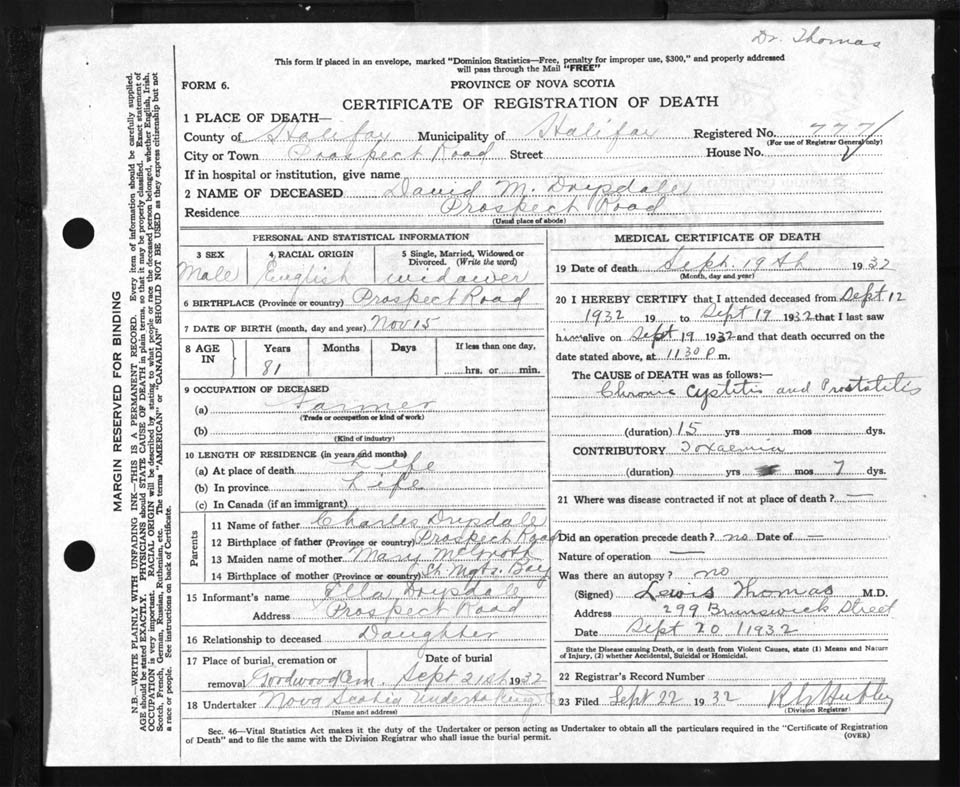 Dr. Thomas
This form if placed in an envelope, marked "Dominion Statistics—Free, penalty for improper use, $300," and properly addressed
will pass through the Mail "FREE"
FORM 6.
PROVINCE OF NOVA SCOTIA
CERTIFICATE OF REGISTRATION OF DEATH
1 PLACE OF DEATH—
County of Halifax Municipality of Halifax Registered No. 777
(For use of Registrar General only)
City or Town Prospect Road Street House No.
If in hospital or institution, give name
2 NAME OF DECEASED David M. Drysdale
Residence Prospect Road
(Usual place of abode)
PERSONAL AND STATISTICAL INFORMATION
3 SEX 4 RACIAL ORIGIN 5 Single, Married, Widowed or
Divorced. (Write the word)
Male English widower
6 BIRTHPLACE (Province or country) Prospect Road
7 DATE OF BIRTH (month, day and year) Nov 15
8 AGE IN Years Months Days If less than one day,
81 hrs. or min.
9 OCCUPATION OF DECEASED
(a) Farmer
(Trade or occupation or kind of work)
(b)
(Kind of industry)
10 LENGTH OF RESIDENCE (in years and months)
(a) At place of death Life
(b) In province Life
(c) In Canada (if an immigrant)
Parents
11 Name of father Charles Drysdale
12 Birthplace of father (Province or country) Prospect Road
13 Maiden name of mother Mary
14 Birthplace of mother (Province or country) St. Mgts. Bay
15 Informant's name Ella Drysdale
Address Prospect Road
16 Relationship to deceased Daughter
17 Place of burial, cremation or Date of burial
removal Goodwood Cem. Sept 21st 1932
18 Undertaker Nova Scotia Undertaking Co
(Name and address)
MEDICAL CERTIFICATE OF DEATH
19 Date of death Sept. 19th 1932
(Month, day and year)
20 I HEREBY CERTIFY that I attended deceased from Sept 12
1932 19 to Sept 19 1932 that I last saw
him alive on Sept 19 1932 and that death occurred on the
date stated above, at 11.30 P m.
The CAUSE OF DEATH was as follows:—
Chronic Cystitis and Prostatitis
(duration) 15 yrs mos dys.
CONTRIBUTORY Toxaemia
(duration) yrs mos 7 dys.
21 Where was disease contracted if not at place of death? —
Did an operation precede death? no Date of —
Nature of operation —
Was there an autopsy? no
(Signed) Lewis Thomas M.D.
Address 299 Brunswick Street
Date Sept 20 / 1932
State the Disease causing Death, or in death from Violent Causes, state (1) Means and Nature
of Injury, (2) whether Accidental, Suicidal or Homicidal.
22 Registrar's Record Number
23 Filed Sept 22 1932 Hubley
(Division Registrar)
Sec. 46—Vital Statistics Act makes it the duty of the Undertaker or person acting as Undertaker to obtain all the particulars required in the "Certificate of Registration
of Death" and to file the same with the Division Registrar who shall issue the burial permit.
(OVER)
MARGIN RESERVED FOR BINDING
N.B.—WRITE PLAINLY WITH UNFADING INK—THIS IS A PERMANENT RECORD. Every item of information should be carefully supplied.
AGE should be stated EXACTLY. PHYSICIANS should STATE CAUSE OF DEATH in plain terms, so that it may be properly classified. Exact statement of
OCCUPATION is very important. RACIAL ORIGIN will be described by stating to what people or race the deceased person belonged, whether English, Irish,
Scotch, French, German, Russian, Ruthenian, etc. The terms "AMERICAN" or "CANADIAN" SHOULD NOT BE USED as they express citizenship but not
a race or people. See instructions on back of Certificate.